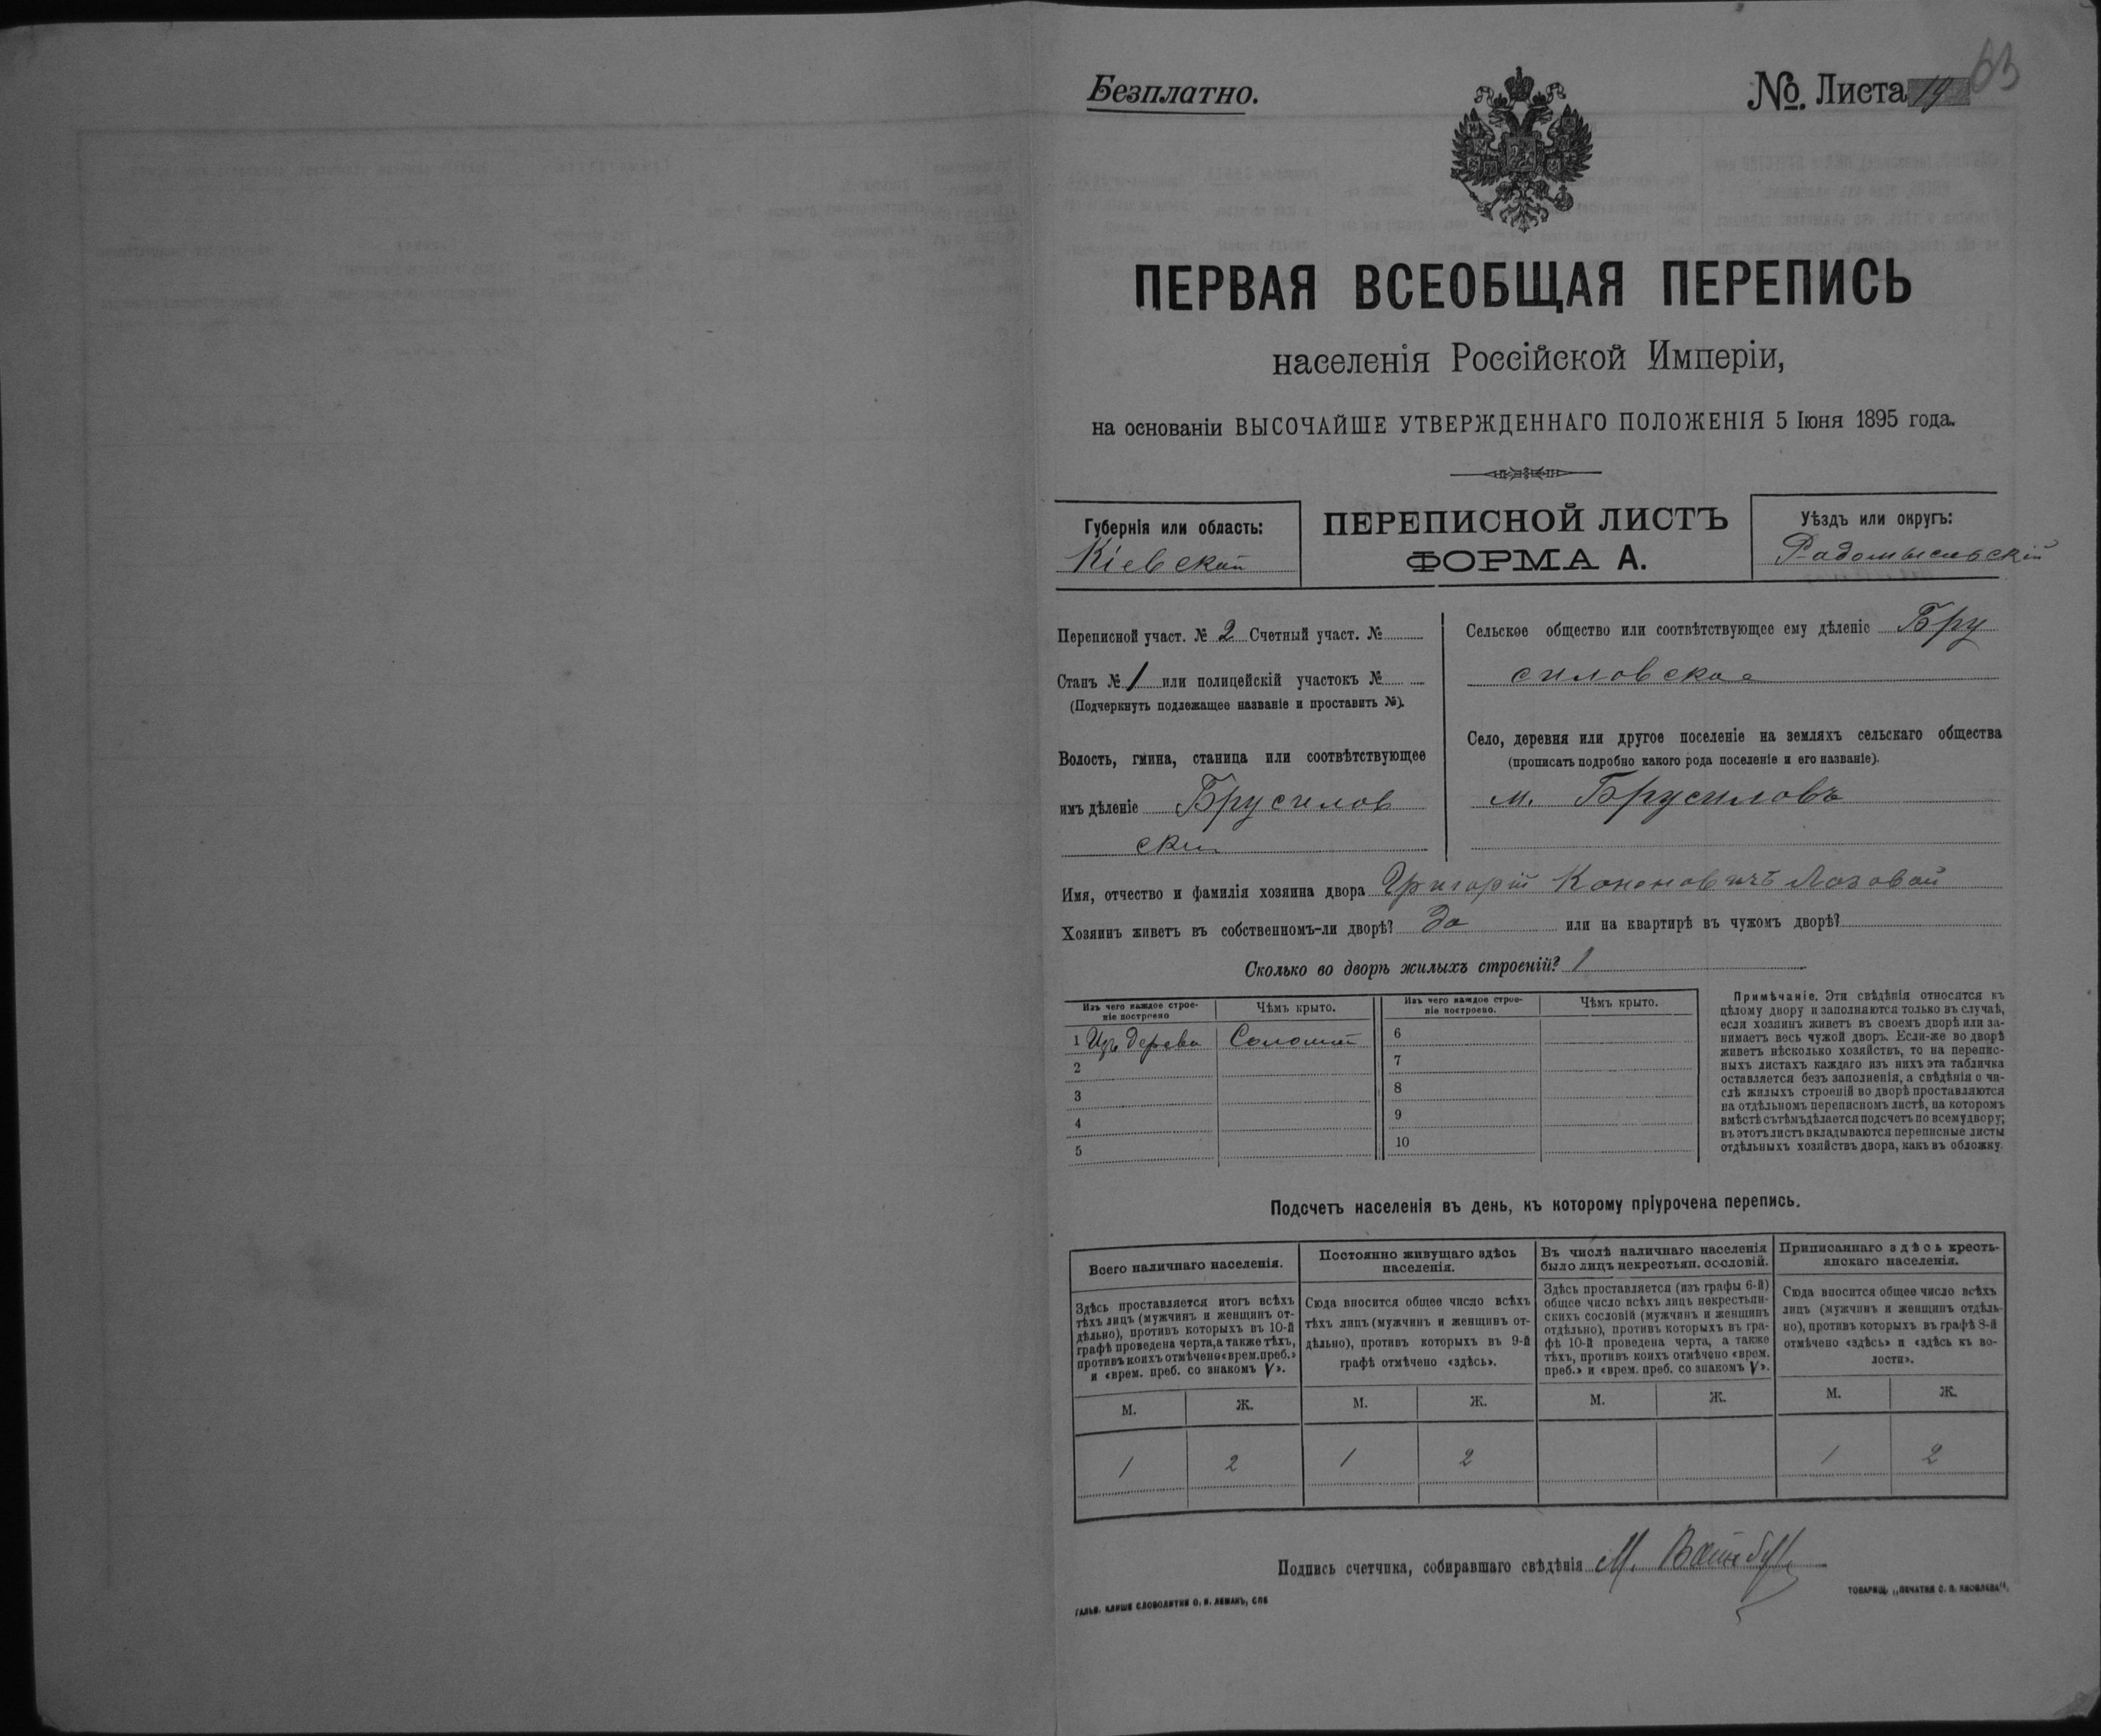 Безплатно.
№ Листа 19
63
ПЕРВАЯ ВСЕОБЩАЯ ПЕРЕПИСЬ
населенія Россійской Имперіи,
на основаніи ВЫСОЧАЙШЕ УТВЕРЖДЕННАГО ПОЛОЖЕНІЯ 5 Іюня 1895 года.
Губернія или область:
Кіевская
ПЕРЕПИСНОЙ ЛИСТЪ
ФОРМА А.
Уѣздъ или округъ:
Радомысльскій
Переписной участ. № 2 Счетный участ. №
Станъ № 1 или полицейскій участокъ №
(Подчеркнуть подлежащее названіе и проставить №).
Волость, гмина, станица или соотвѣтствующее
имъ дѣленіе Брусилов
ская
Сельское общество или соотвѣтствующее ему дѣленіе Бру
силовское
Село, деревня или другое поселеніе на земляхъ сельскаго общества
(прописать подробно какого рода поселеніе и его названіе).
м. Брусиловъ
Имя, отчество и фамилія хозяина двора Григорій Кононовичъ Лозовой
Хозяинъ живетъ въ собственномъ-ли дворѣ? Да или на квартирѣ въ чужомъ дворѣ?
Сколько во дворѣ жилыхъ строеній? 1
Изъ чего каждое строе-
ніе построено
Чѣмъ крыто.
Изъ чего каждое строе-
ніе построено.
Чѣмъ крыто.
1 Изъ дерева Соломой
2
3
4
5
6
7
8
9
10
Примѣчаніе. Эти свѣдѣнія относятся къ
цѣлому двору и заполняются только въ случаѣ,
если хозяинъ живетъ въ своемъ дворѣ или за-
нимаетъ весь чужой дворъ. Если-же во дворѣ
живетъ нѣсколько хозяйствъ, то на перепис-
ныхъ листахъ каждаго изъ нихъ эта табличка
оставляется безъ заполненія, а свѣдѣнія о чи-
слѣ жилыхъ строеній во дворѣ проставляются
на отдѣльномъ переписномъ листѣ, на которомъ
вмѣстѣ съ тѣмъ дѣлается подсчетъ по всему двору;
въ этотъ листъ вкладываются переписные листы
отдѣльныхъ хозяйствъ двора, какъ въ обложку.
Подсчетъ населенія въ день, къ которому пріурочена перепись.
Всего наличнаго населенія.
Здѣсь проставляется итогъ всѣхъ
тѣхъ лицъ (мужчинъ и женщинъ от-
дѣльно), противъ которыхъ въ 10-й
графѣ проведена черта, а также тѣхъ,
противъ коихъ отмѣчено «врем. преб.»
и «врем. преб. со знакомъ V».
Постоянно живущаго здѣсь
населенія.
Сюда вносится общее число всѣхъ
тѣхъ лицъ (мужчинъ и женщинъ от-
дѣльно), противъ которыхъ въ 9-й
графѣ отмѣчено «здѣсь».
Въ числѣ наличнаго населенія
было лицъ некрестьян. сословій.
Здѣсь проставляется (изъ графы 6-й)
общее число всѣхъ лицъ некрестьян-
скихъ сословій (мужчинъ и женщинъ
отдѣльно), противъ которыхъ въ гра-
фѣ 10-й проведена черта, а также
тѣхъ, противъ коихъ отмѣчено «врем.
преб.» и «врем. преб. со знакомъ V».
Приписаннаго здѣсь кресть-
янскаго населенія.
Сюда вносится общее число всѣхъ
лицъ (мужчинъ и женщинъ отдѣль-
но), противъ которыхъ въ графѣ 8-й
отмѣчено «здѣсь» и «здѣсь къ во-
лости».
М. Ж. М. Ж. М. Ж. М. Ж.
1 2 1 2 1 2
Подпись счетчика, собиравшаго свѣдѣнія М.
ГАЛЬВ. КЛИШЕ СЛОВОЛИТНИ О. И. ЛЕМАНЪ, СПБ
ТОВАРИЩ. „ПЕЧАТНЯ С. П. ЯКОВЛЕВА".